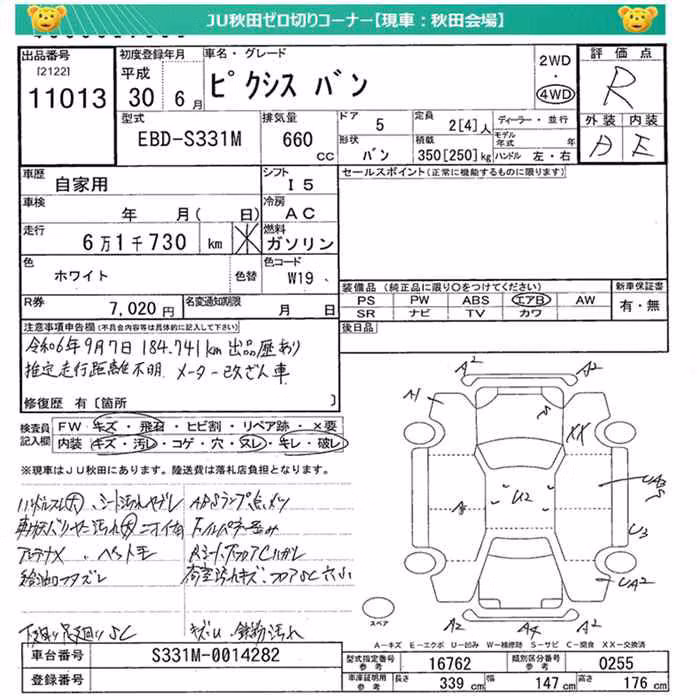 JU秋田ゼロ切りコーナー【現車：秋田会場】
出品番号
[2122]
11013
初度登録年月
平成
30 年 6 月
車名・グレード
ピクシス バン
2WD
・
4WD
評価点
R
外装 内装
A E
型式
EBD-S331M
排気量
660 cc
ドア
5
形状
バン
定員
2[4]人
積載
350[250]kg
ディーラー・並行
モデル年式 年
ハンドル 左・右
車歴
自家用
シフト
I5
車検
年 月( 日)
冷房
AC
走行
6万1千730 km
燃料
ガソリン
色
ホワイト
色替
色コード
W19
R券
7,020円
名変通知期限
月 日
セールスポイント(正常に機能するものに限ります)
装備品 (純正品に限り○をつけてください)
PS PW ABS エアB AW
SR ナビ TV カワ
新車保証書
有・無
後日品
注意事項申告欄(不具合内容等は具体的に記入して下さい)
令和6年9月7日 184.741km 出品歴あり
推定走行距離不明 メーター改ざん車
修復歴 有 [箇所 ]
検査員記入欄
FW キズ・飛石・ヒビ割・リペア跡・×要
内装 キズ・汚レ・コゲ・穴・スレ・キレ・破レ
※現車はJU秋田にあります。陸送費は落札店負担となります。
ハンドルスレ大、シート汚れヤブレ
ABSランプ点、メツ
給油フタズレ
下廻り足廻りSC
キズU 鉄粉汚れ
A1 A2 A2
S
XX
A U2
U3
UA2
A2 A4 A2
スペア
A－キズ E－エクボ U－凹み W－補修跡 S－サビ C－腐食 XX－交換済
車台番号
S331M-0014282
登録番号
型式指定番号 参考
16762
類別区分番号 参考
0255
車庫証明用 参考
長さ
339 cm
幅
147 cm
高さ
176 cm